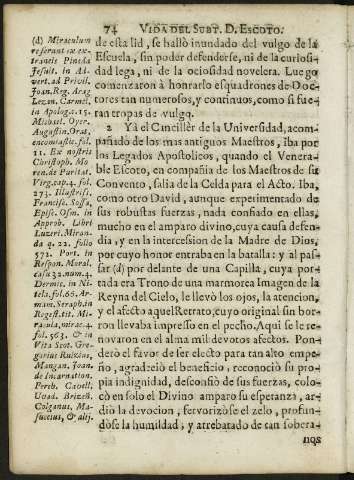 74 VIDA DEL SUBT. D. ESCOTO.
(d) Miraculum
referunt ex ex-
traneis Pineda
Jesuit. in Ad-
vert. ad Privil.
Joan. Reg. Arag
Lezan. Carmel.
in Apolog. c. 15.
Michael. Oyer.
Augustin. Orat.
encomiastic. fol.
11. Ex nostris
Christoph. Mo-
ren. de Puritat.
Virg. cap. 4. fol.
273. Illustriss.
Francisc. Sossa,
Episc. Osm. in
Approb. Libri
Luzeri. Miran-
da q. 22. folio
572. Port. in
Respon. Moral.
casu 32. num. 4.
Dermic. in Ni-
tela. fol. 66. Ar-
mam. Seraph. in
Regest. tit. Mi-
racula, mirac. 4.
fol. 563. & in
Vita Scot. Gre-
gorius Ruizius,
Mangan. Joan.
de Incarnation.
Pereb. Cavell,
Uvad. Brizeñ.
Colganus, Ma-
succius, & alij.
de esta lid, se hallò inundado del vulgo de la
Escuela, sin poder defenderse, ni de la curiosi-
dad lega, ni de la ociosidad novelera. Luego
comenzaron à honrarlo esquadrones de Doc-
tores tan numerosos, y continuos, como si fue-
ran tropas de vulgo.
2 Yà el Cancillèr de la Universidad, acom-
pañado de los mas antiguos Maestros, iba por
los Legados Apostolicos, quando el Venera-
ble Escoto, en compañia de los Maestros de su
Convento, salia de la Celda para el Acto. Iba,
como otro David, aunque experimentado de
sus robustas fuerzas, nada confiado en ellas,
mucho en el amparo divino, cuya causa defen-
dia, y en la intercession de la Madre de Dios,
por cuyo honor entraba en la batalla: y al pas-
sar (d) por delante de una Capilla, cuya por-
tada era Trono de una marmorea Imagen de la
Reyna del Cielo, le llevò los ojos, la atencion,
y el afecto aquel Retrato, cuyo original sin bor-
ron llevaba impresso en el pecho. Aqui se le re-
novaron en el alma mil devotos afectos. Pon-
deró el favor de ser electo para tan alto empe-
ño, agradeciò el beneficio, reconociò su pro-
pia indignidad, desconfiò de sus fuerzas, colo-
cò en solo el Divino amparo su esperanza, ar-
diò la devocion, fervorizòse el zelo, profun-
dòse la humildad, y arrebatado de tan sobera-
nos